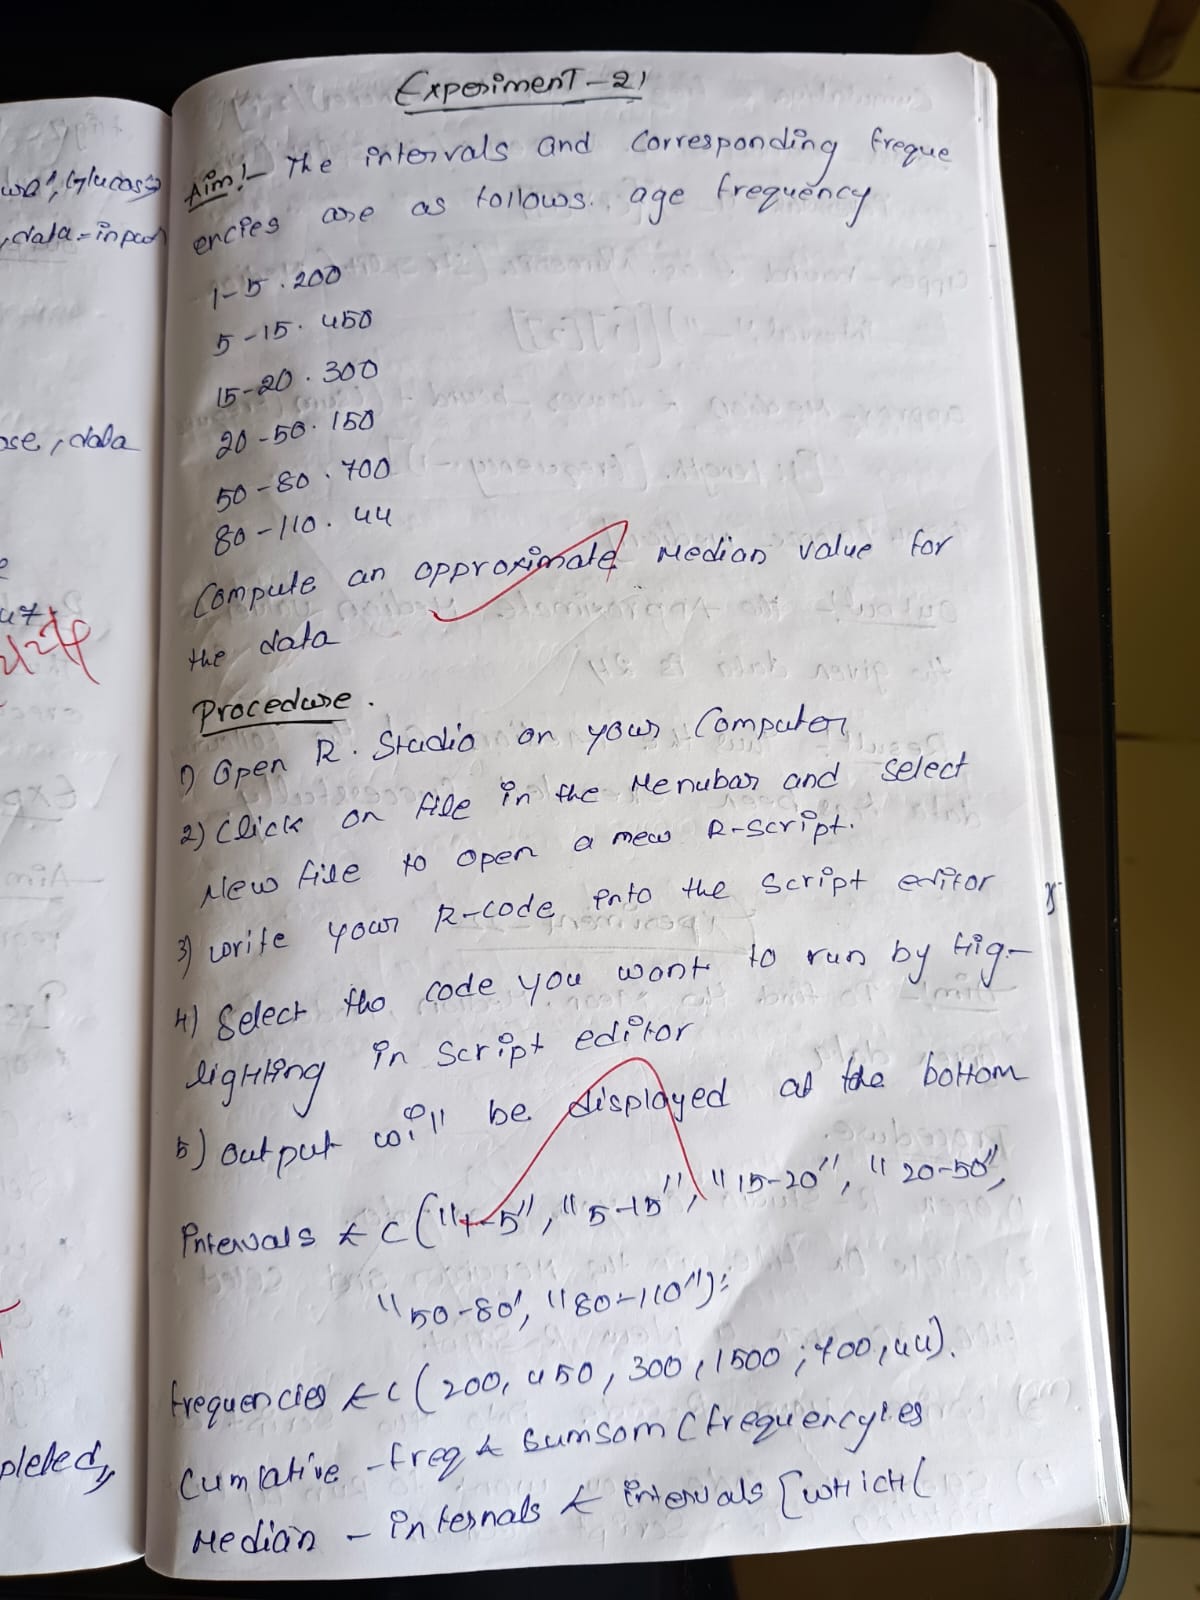 Experiment-21
Aim:- The intervals and corresponding freque
encies are as follows. age frequency
1-5. 200
5-15. 450
15-20. 300
20-50. 150
50-80. 700
80-110. 44
Compute an approximate Median value for
the data
Procedure.
1) Open R. Studio on your Computer
2) Click on file in the Menubar and select
New file to open a new R-script.
3) write your R-code into the script editor
4) Select the code you want to run by hig-
lighting in script editor
5) output will be displayed at the bottom
intervals ← c("1-5", "5-15", "15-20", "20-50",
"50-80", "80-110"):
frequencies ← c(200, 450, 300, 1500, 700, 44).
Cumlative -freq ← Sumsom (frequencyies
Median - internals ← intervals [which(
ose, data
pleted,
, data = input